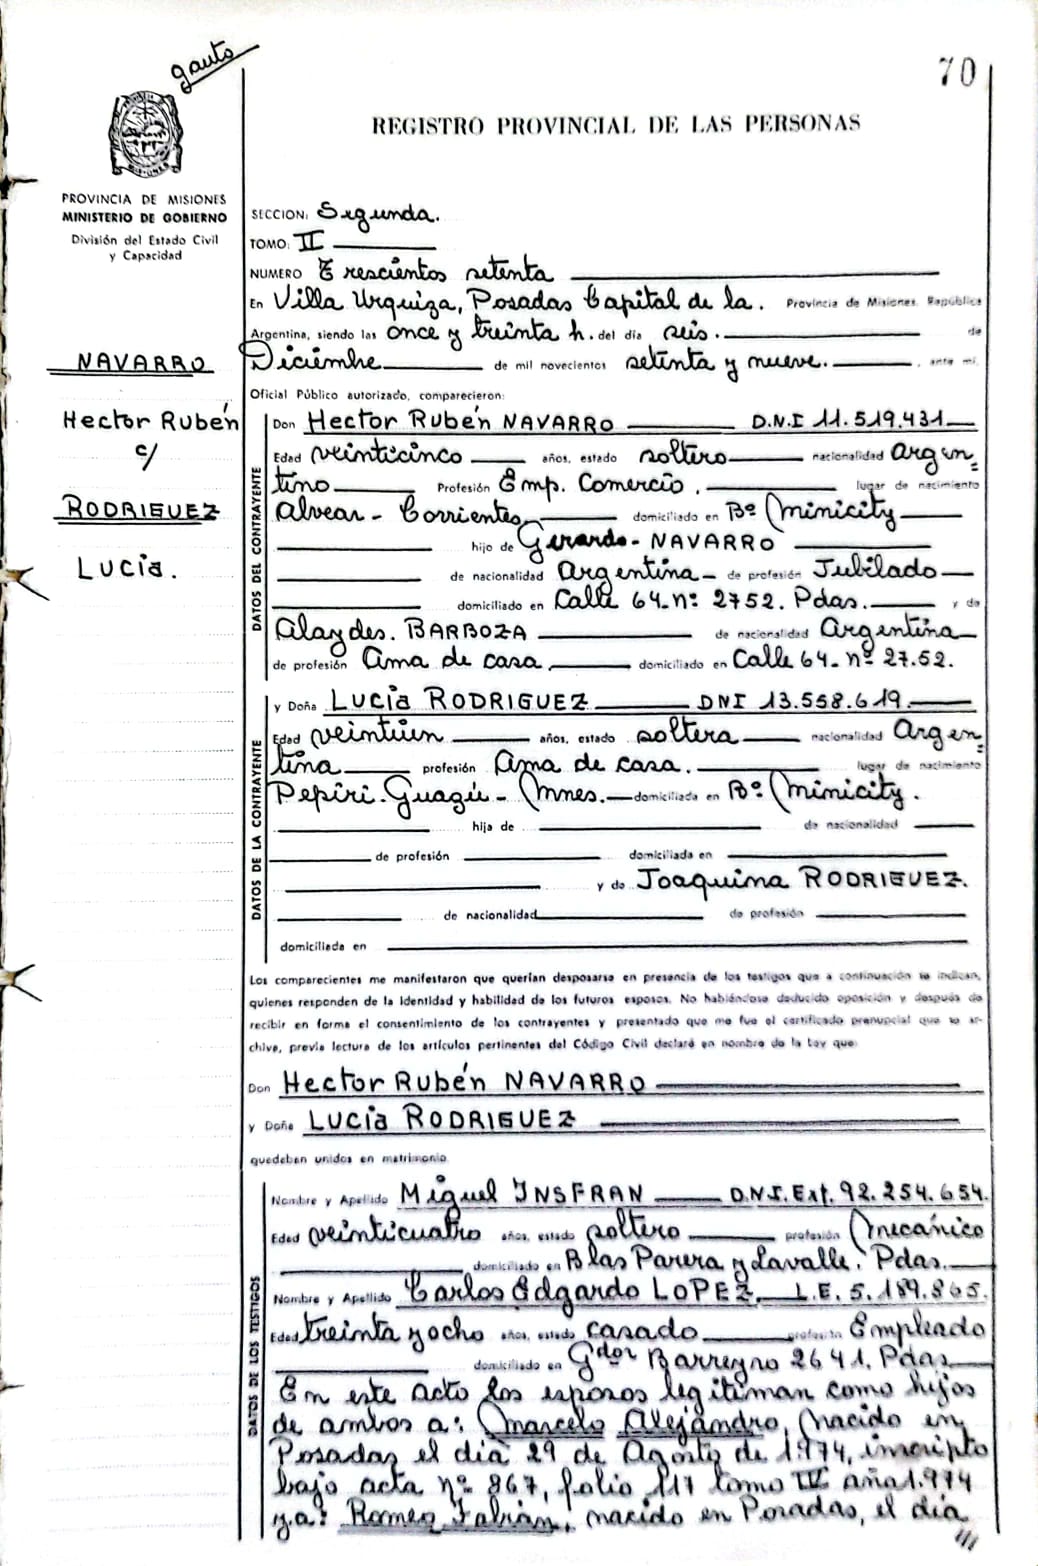 gauto
70
REGISTRO PROVINCIAL DE LAS PERSONAS
PROVINCIA DE MISIONES
MINISTERIO DE GOBIERNO
División del Estado Civil
y Capacidad
SECCION: Segunda.
TOMO: II
NUMERO Trescientos setenta
En Villa Urquiza, Posadas Capital de la. Provincia de Misiones. República
Argentina, siendo las once y treinta h. del día seis. de
Diciembre de mil novecientos setenta y nueve. , ante mí,
Oficial Público autorizado, comparecieron:
NAVARRO
Hector Rubén
c/
RODRIGUEZ
Lucía.
DATOS DEL CONTRAYENTE
Don Hector Rubén NAVARRO D.N.I 11.519.431
Edad veinticinco años, estado soltero nacionalidad Argen=
tino Profesión Emp. Comercio. lugar de nacimiento
Alvear - Corrientes domiciliado en Bº Minicity
hijo de Gerardo - NAVARRO
de nacionalidad Argentina - de profesión Jubilado
domiciliado en Calle 64. nº 2752. Pdas. y de
Alaydes. BARBOZA de nacionalidad Argentina
de profesión Ama de casa domiciliado en Calle 64 - nº 27.52.
DATOS DE LA CONTRAYENTE
y Doña Lucía RODRIGUEZ DNI 13.558.619.
Edad veintiún años, estado soltera nacionalidad Argen=
tina profesión Ama de casa. lugar de nacimiento
Pepiri-Guazú - Mnes. domiciliada en Bº Minicity.
hija de de nacionalidad
de profesión domiciliada en
y de Joaquina RODRIGUEZ.
de nacionalidad de profesión
domiciliada en
Los comparecientes me manifestaron que querían desposarse en presencia de los testigos que a continuación se indican,
quienes responden de la identidad y habilidad de los futuros esposos. No habiéndose deducido oposición y después de
recibir en forma el consentimiento de los contrayentes y presentado que me fue el certificado prenupcial que se ar-
chiva, previa lectura de los artículos pertinentes del Código Civil declaré en nombre de la Ley que:
Don Hector Rubén NAVARRO
y Doña Lucía RODRIGUEZ
quedaban unidos en matrimonio.
DATOS DE LOS TESTIGOS
Nombre y Apellido Miguel INSFRAN D.N.I. Ext. 92.254.654.
Edad veinticuatro años, estado soltero profesión Mecánico
domiciliado en Blas Parera y Lavalle. Pdas.
Nombre y Apellido Carlos Edgardo LOPEZ L.E. 5.189.865.
Edad treinta y ocho años, estado casado profesión Empleado
domiciliado en Gdor Barreyro 2641. Pdas
En este acto los esposos legitiman como hijos
de ambos a: Marcelo Alejandro, nacido en
Posadas el día 29 de Agosto de 1.974, inscripto
bajo acta nº 867, folio 117 tomo IV año 1.974
y a: Romeo Fabián, nacido en Posadas, el día
///